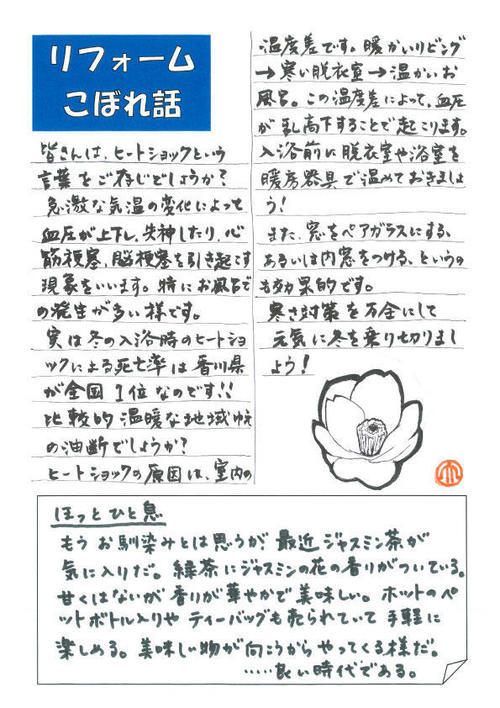 リフォーム
こぼれ話
皆さんは、ヒートショックという
言葉をご存じでしょうか？
急激な気温の変化によって
血圧が上下し、失神したり、心
筋梗塞、脳梗塞を引き起こす
現象をいいます。特にお風呂で
の発生が多い様です。
実は冬の入浴時のヒートショ
ックによる死亡率は香川県
が全国1位なのです!!
比較的温暖な地域ゆえ
の油断でしょうか？
ヒートショックの原因は、室内の
温度差です。暖かいリビング
→寒い脱衣室→温かいお
風呂。この温度差によって、血圧
が乱高下することで起こります。
入浴前に脱衣室や浴室を
暖房器具で温めておきましょ
う！
また、窓をペアガラスにする、
あるいは内窓をつける、というの
も効果的です。
寒さ対策を万全にして
元気に冬を乗り切りまし
ょう！
ほっとひと息
もうお馴染みとは思うが、最近ジャスミン茶が
気に入りだ。緑茶にジャスミンの花の香りがついている。
甘くはないが香りが華やかで美味しい。ホットのペ
ットボトル入りやティーバッグも売られていて手軽に
楽しめる。美味しい物が向こうからやってくる様だ。
……良い時代である。